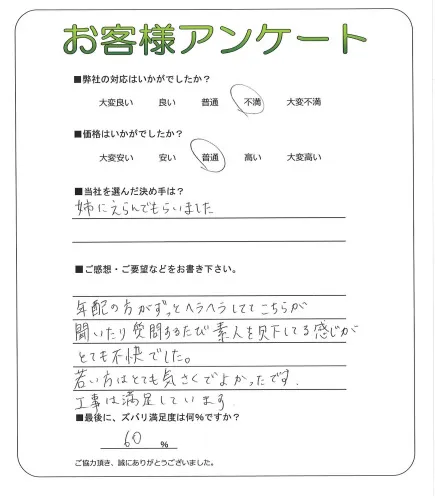 お客様アンケート
■弊社の対応はいかがでしたか？
大変良い 良い 普通 不満 大変不満
■価格はいかがでしたか？
大変安い 安い 普通 高い 大変高い
■当社を選んだ決め手は？
姉にえらんでもらいました
■ご感想・ご要望などをお書き下さい。
年配の方がずっとヘラヘラしててこちらが
聞いたり質問するたび素人を見下してる感じが
とても不快でした。
若い方はとても気さくでよかったです.
工事は満足しています.
■最後に、ズバリ満足度は何％ですか？
60 %
ご協力頂き、誠にありがとうございました。